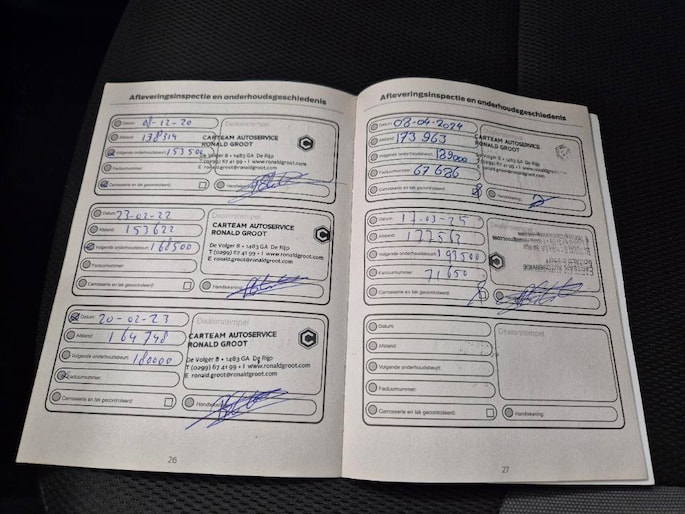 Afleveringsinspectie en onderhoudsgeschiedenis
Datum: 01-12-20
Dealerstempel
Afstand: 138314
CARTEAM AUTOSERVICE
RONALD GROOT
Volgende onderhoudsbeurt: 153500
De Volger 8 • 1483 GA De Rijp
T (0299) 67 41 99 • I www.ronaldgroot.com
Factuurnummer:
E ronald.groot@ronaldgroot.com
Carrosserie en lak gecontroleerd:
Handtekening:
Datum: 23-02-22
Dealerstempel
Afstand: 153622
CARTEAM AUTOSERVICE
RONALD GROOT
Volgende onderhoudsbeurt: 168500
De Volger 8 • 1483 GA De Rijp
T (0299) 67 41 99 • I www.ronaldgroot.com
Factuurnummer:
E ronald.groot@ronaldgroot.com
Carrosserie en lak gecontroleerd:
Handtekening:
Datum: 20-02-23
Dealerstempel
Afstand: 164748
CARTEAM AUTOSERVICE
RONALD GROOT
Volgende onderhoudsbeurt: 180000
De Volger 8 • 1483 GA De Rijp
T (0299) 67 41 99 • I www.ronaldgroot.com
Factuurnummer:
E ronald.groot@ronaldgroot.com
Carrosserie en lak gecontroleerd:
Handtekening:
26
Afleveringsinspectie en onderhoudsgeschiedenis
Datum: 08-04-2024
Dealerstempel
Afstand: 173963
CARTEAM AUTOSERVICE
RONALD GROOT
Volgende onderhoudsbeurt: 189000
De Volger 8 • 1483 GA De Rijp
T (0299) 67 41 99 • I www.ronaldgroot.com
Factuurnummer: 67626
E ronald.groot@ronaldgroot.com
Carrosserie en lak gecontroleerd:
Handtekening:
Datum: 17-03-25
Afstand: 177563
Volgende onderhoudsbeurt: 192500
CARTEAM AUTOSERVICE
RONALD GROOT
Factuurnummer: 71650
Carrosserie en lak gecontroleerd:
Handtekening:
Datum:
Dealerstempel
Afstand:
Volgende onderhoudsbeurt:
Factuurnummer:
Carrosserie en lak gecontroleerd:
Handtekening:
27